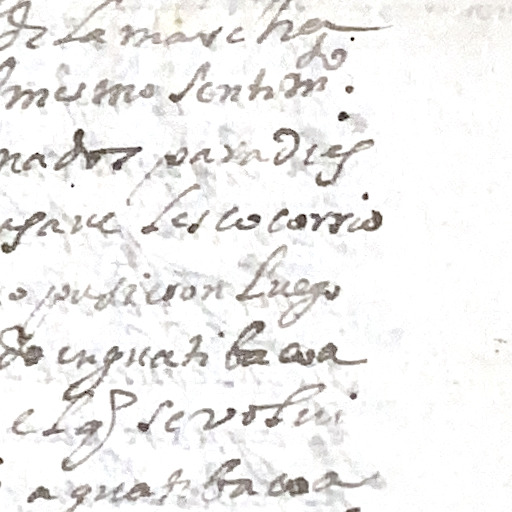 de la marcha
mismo sentimdo.
nados para dies
les cocorrio
o pudieron luego
do en guatibacoa
el q̃ se volui
a guatibacoa